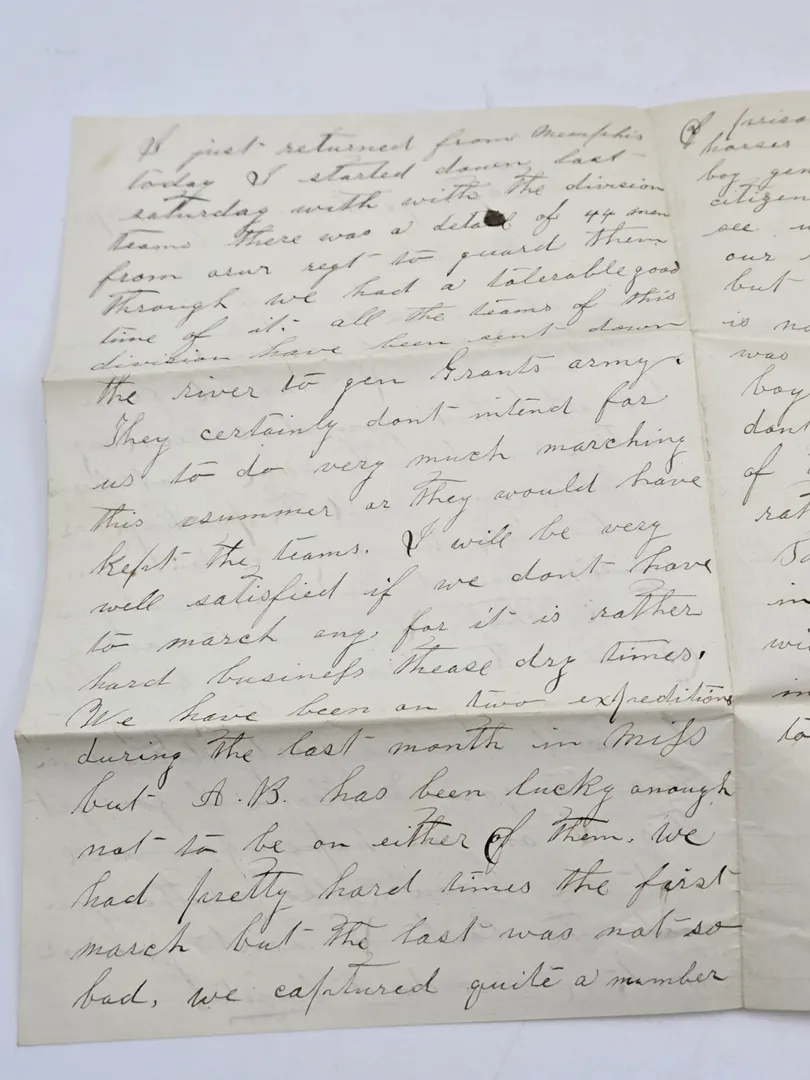 I just returned from Memphis
today I started down last
saturday with with the division
teams there was a detail of 44 men
from our regt to guard them
through we had a tolerable good
time of it. all the teams of this
division have been sent down
the river to gen Grants army.
They certainly dont intend for
us to do very much marching
this summer or they would have
kept the teams. I will be very
well satisfied if we dont have
to march any for it is rather
hard business thease dry times.
We have been on two expeditions
during the last month in Miss
but A.B. has been lucky enough
not to be on either of them. We
had pretty hard times the first
march but the last was not so
bad, we captured quite a number
of priso
horses
boy gen
citizen
see
our
but
is no
was
boy
dont
of
rat
in
wi
in
to